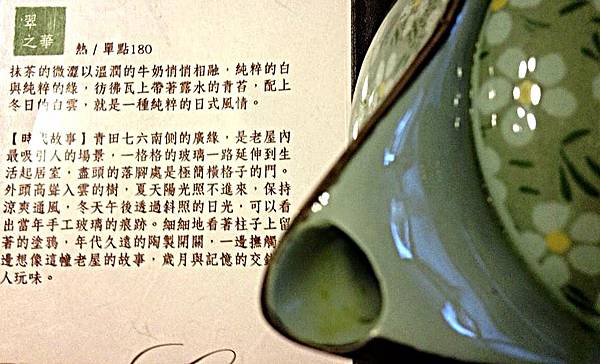 翠
之華
熱 / 單點180
抹茶的微澀以溫潤的牛奶悄悄相融，純粹的白
與純粹的綠，彷彿瓦上帶著露水的青苔，配上
冬日的白雲，就是一種純粹的日式風情。
【時代故事】青田七六南側的廣緣，是老屋內
最吸引人的場景，一格格的玻璃一路延伸到生
活起居室，盡頭的落腳處是極簡橫格子的門。
外頭高聳入雲的樹，夏天陽光照不進來，保持
涼爽通風，冬天午後透過斜照的日光，可以看
出當年手工玻璃的痕跡。細細地看著柱子上留
著的塗鴉，年代久遠的陶製開關，一邊撫觸
邊想像這幢老屋的故事，歲月與記憶的交
人玩味。